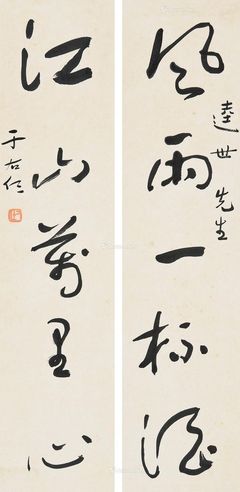 風雨一杯酒
逵世先生
江山萬里心
于右任